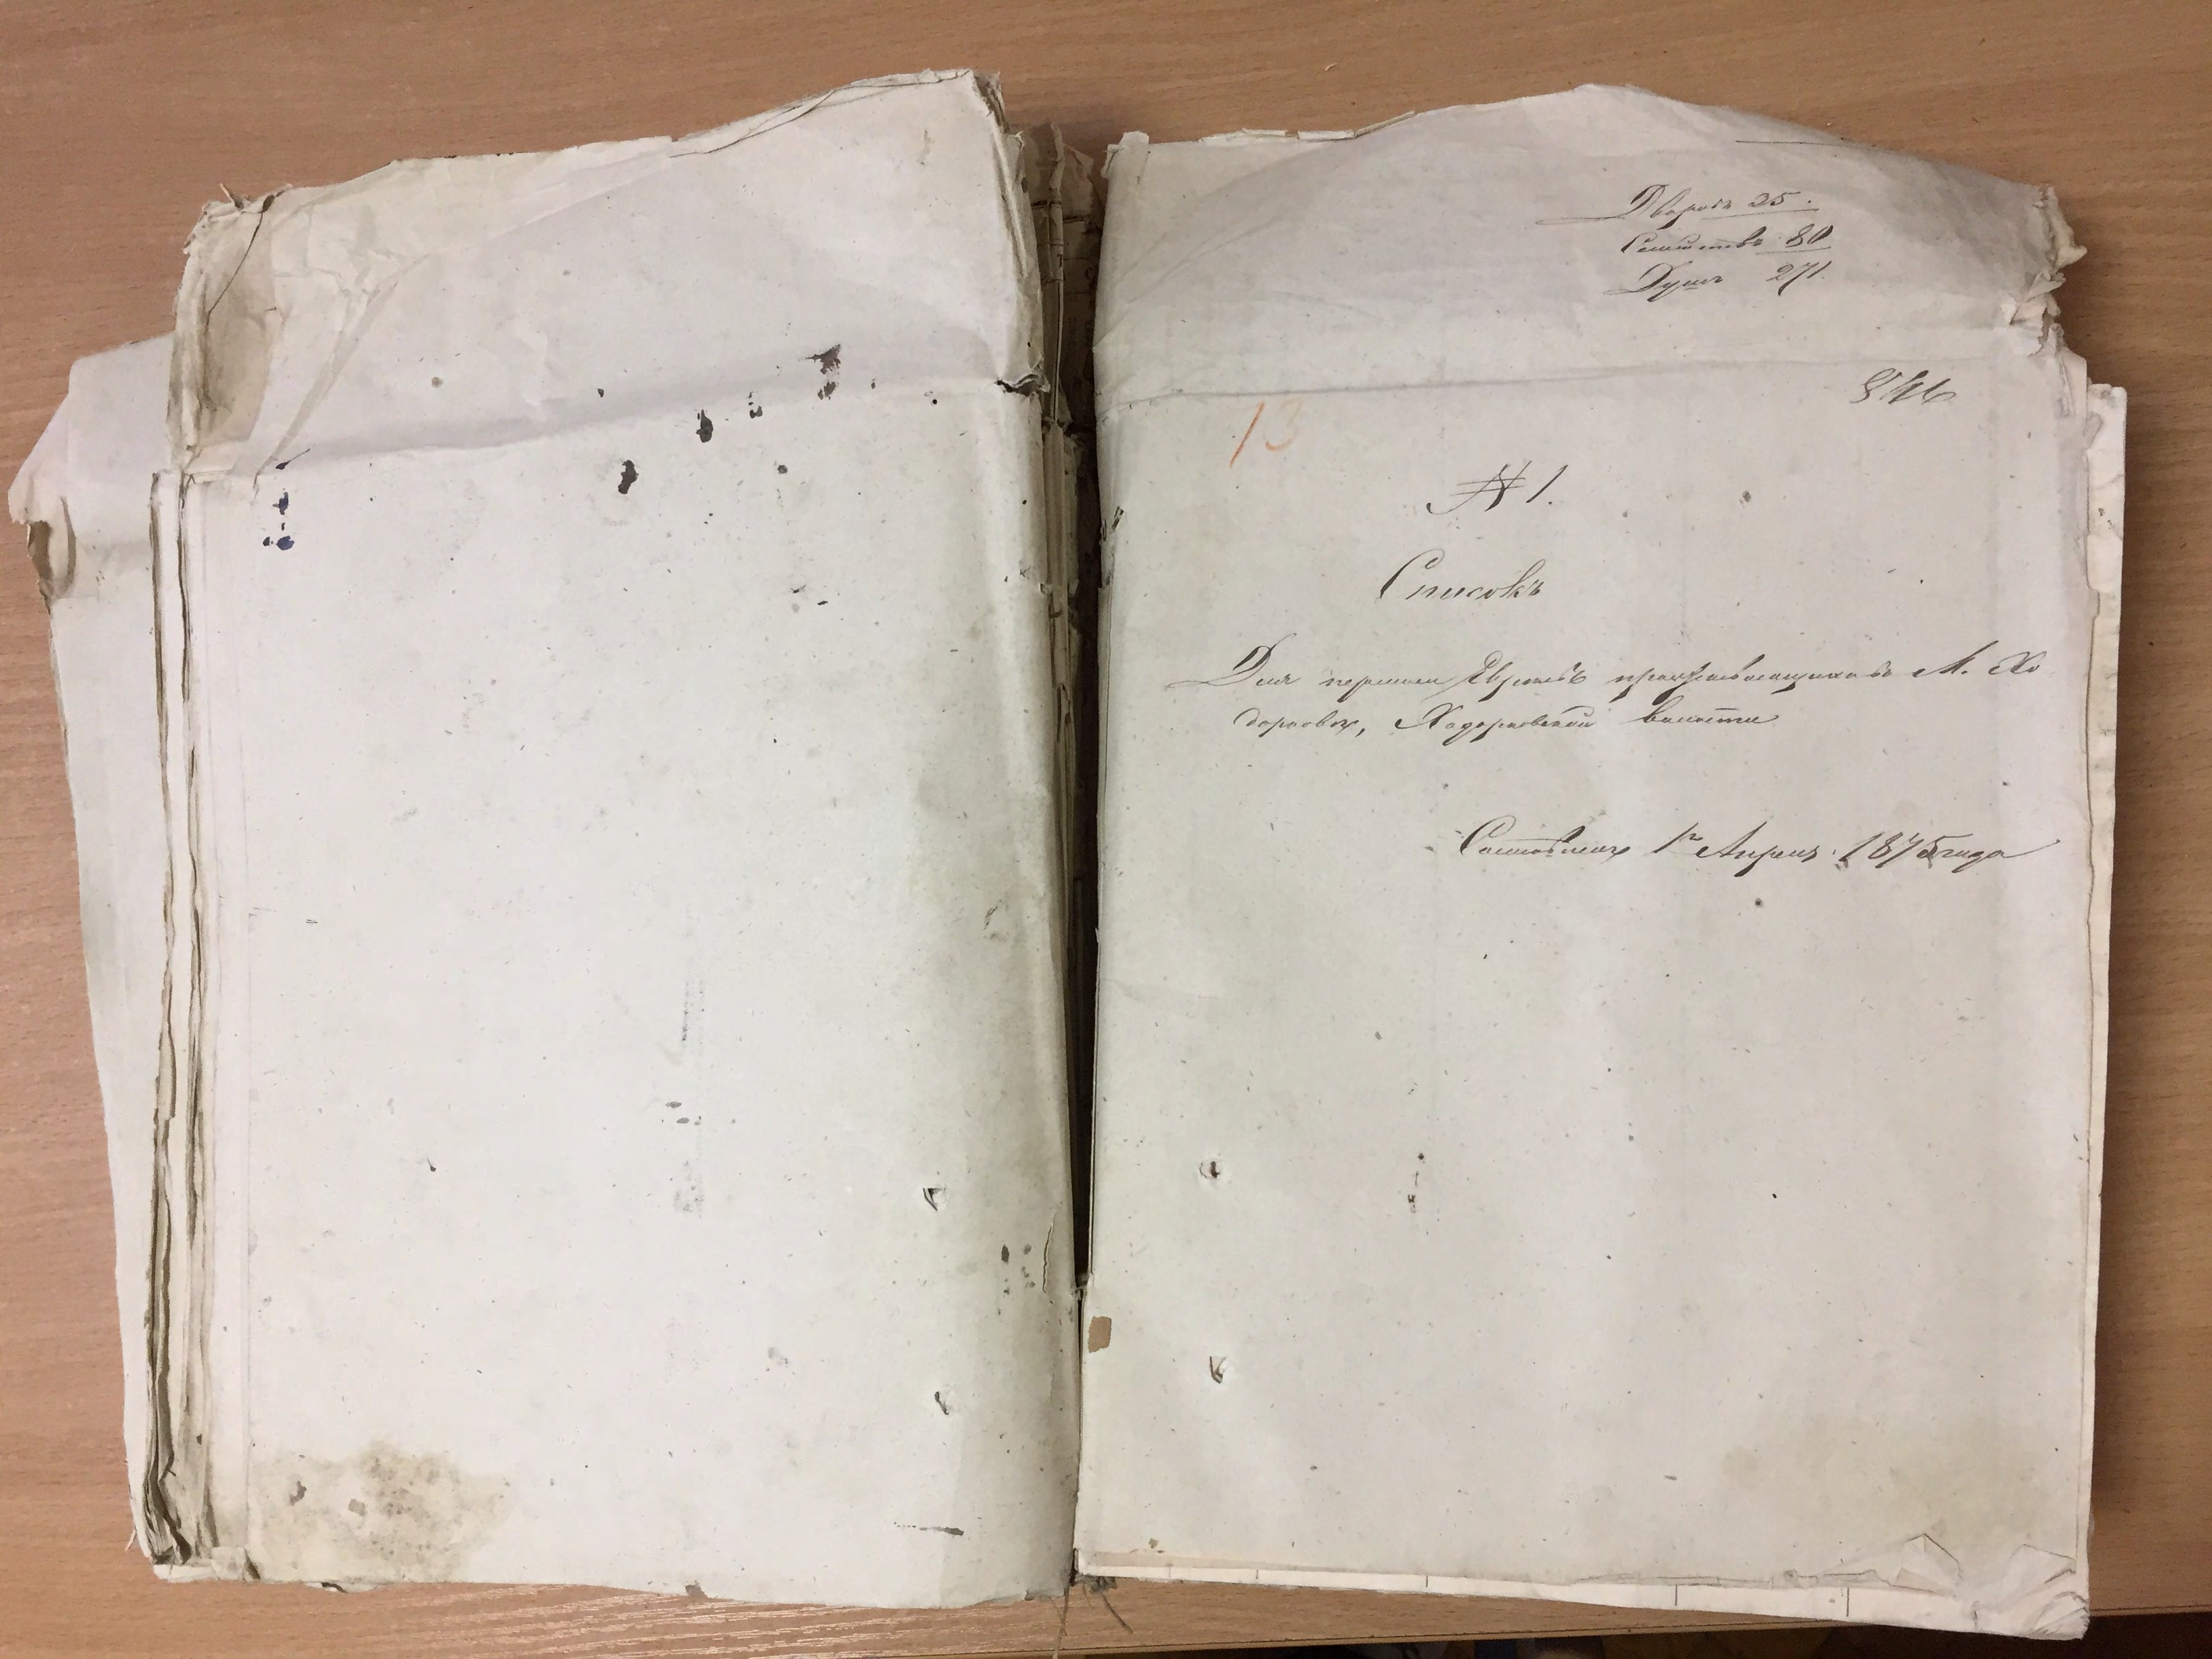 Дворовъ 25.
Семействъ 80
Душъ 271.
846
13
№ 1.
Списокъ
Для переписи Евреевъ проживающихъ въ М. Хо
доркове, Ходорковской волости
Составленъ 1го Апреля 1875 года